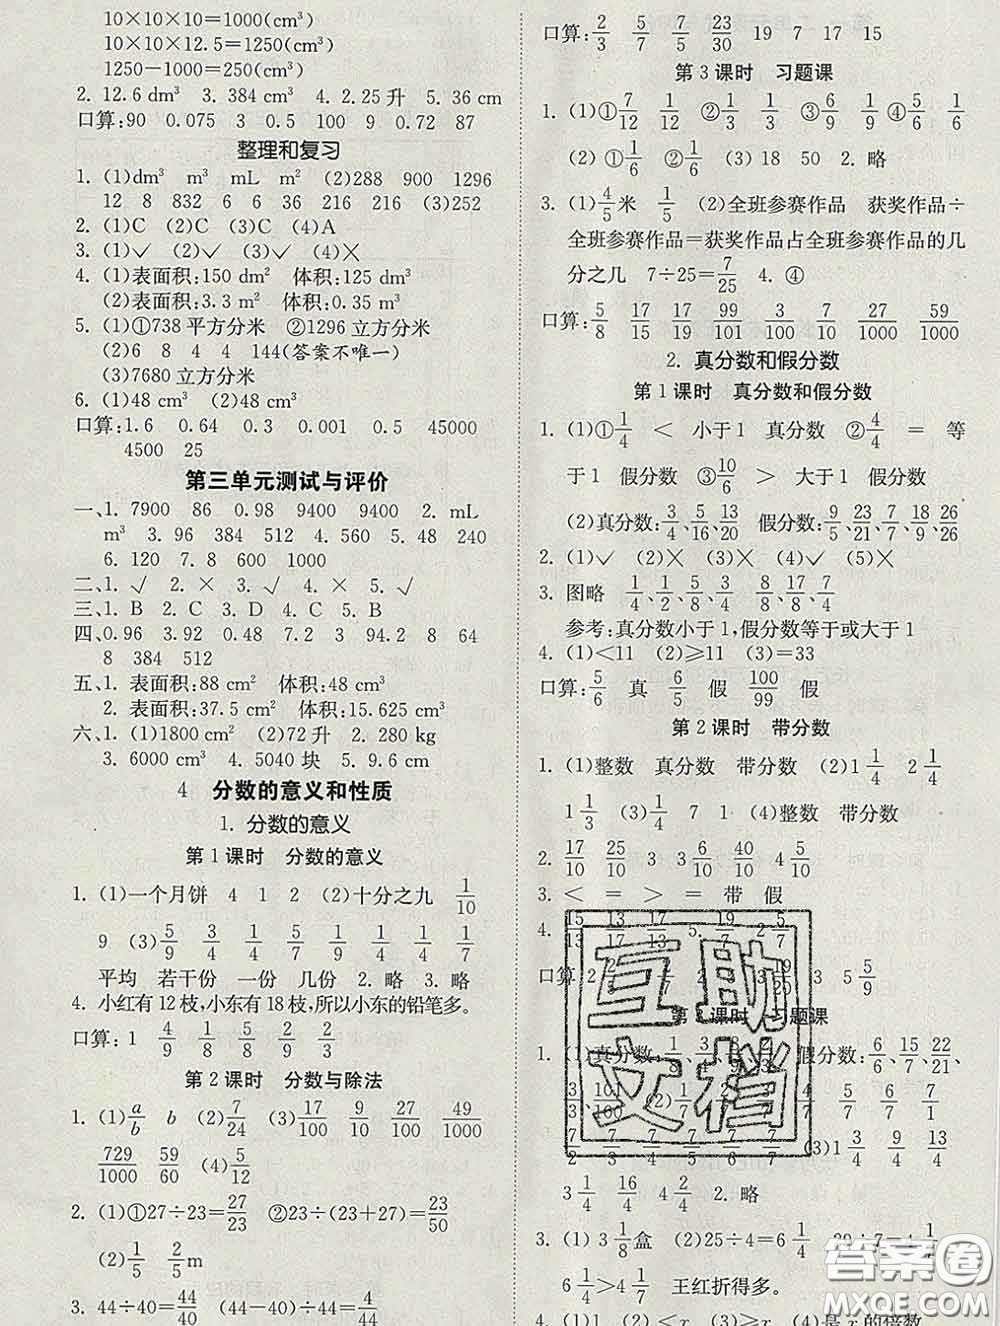 10×10×10=1000(cm³)
10×10×12.5=1250(cm³)
1250−1000=250(cm³)
2. 12.6 dm³ 3. 384 cm³ 4. 2.25 升 5. 36 cm
口算:90 0.075 3 0.5 100 9 0.72 87
整理和复习
1. (1)dm³ m³ mL m² (2)288 900 1296
12 8 832 6 6 36 216 216 (3)252
2. (1)C (2)C (3)C (4)A
3. (1)✓ (2)✓ (3)✓ (4)×
4. (1)表面积:150 dm² 体积:125 dm³
(2)表面积:3.3 m² 体积:0.35 m³
5. (1)①738 平方分米 ②1296 立方分米
(2)6 8 4 4 144(答案不唯一)
(3)7680 立方分米
6. (1)48 cm³ (2)48 cm³
口算:1.6 0.64 0.3 0.001 0.5 45000
4500 25
第三单元测试与评价
一、1. 7900 86 0.98 9400 9400 2. mL
m³ 3. 96 384 512 4. 560 5. 48 240
6. 120 7. 8 600 1000
二、1. √ 2. × 3. × 4. √ 5. √
三、1. B 2. C 3. D 4. C 5. B
四、0.96 3.92 0.48 7.2 3 94.2 8 64
8 384 512
五、1. 表面积:88 cm² 体积:48 cm³
2. 表面积:37.5 cm² 体积:15.625 cm³
六、1. (1)1800 cm² (2)72 升 2. 280 kg
3. 6000 cm³ 4. 5040 块 5. 9.6 cm
4 分数的意义和性质
1. 分数的意义
第 1 课时 分数的意义
1. (1)一个月饼 4 1 2 (2)十分之九 1/10
9 (3)5/9 3/4 3/4 5/9 1/4 1/4 1/7
平均 若干份 一份 几份 2. 略 3. 略
4. 小红有 12 枝,小东有 18 枝,所以小东的铅笔多。
口算:1 4/9 4/8 5/9 2/9 2/3
第 2 课时 分数与除法
1. (1)a/b b (2)7/24 (3)17/100 9/10 27/100 49/1000
729/1000 59/60 (4)5/12
2. (1)①27÷23=27/23 ②23÷(23+27)=23/50
(2)1/5 2/5m
3. 44÷40=44/40 (44−40)÷44=4/44
口算:2/3 5/7 7/5 23/30 19 7 17 15
第 3 课时 习题课
1. (1)①7/12 1/12 ②1/3 1/3 ③6/9 1/9 ④5/6 1/6
(2) ①1/6 ②1/6 (3) 18 50 2. 略
3. (1)4/5米 1/5 (2)全班参赛作品 获奖作品÷
全班参赛作品=获奖作品占全班参赛作品的几
分之几 7÷25=7/25 4. ④
口算:5/8 17/15 17/19 99/101 3/100 7/10 27/1000 59/1000
2. 真分数和假分数
第 1 课时 真分数和假分数
1. (1)①1/4 < 小于 1 真分数 ②4/4 = 等
于 1 假分数 ③10/6 > 大于 1 假分数
(2)真分数:3/4、5/16、13/20 假分数:9/5、23/21、7/7、18/9、26/26
2. (1)✓ (2)× (3)× (4)✓ (5)×
3. 图略 1/4、1/2、5/4、3/4 8/8、17/8、7/4
参考:真分数小于 1,假分数等于或大于 1
4. (1)<11 (2)≥11 (3)=33
口算:5/6 真 6/5 假 100/99 假
第 2 课时 带分数
1. (1)整数 真分数 带分数 (2)1 1/4 2 1/4
1 1/3 (3)7/6 7 1 (4)整数 带分数
2. 17/10 25/10 3 3 6/10 40/10 4 5/10
3. < = > = 带 假
4. 15/13 13/17 17/13 5. 19/7 2 5/7
口算:2 3 5 5/9
课时 习题课
1. (1)真分数:1/3 假分数:6/6、15/7、22/21、
(2) 4/4 5/7 6/7 7/1
7/2 7/3 7/4 7/5 7/6 7/7 (3)1 3/4 9/4 13/4
3 1/4 16/4 4 2/4 2. 略
3. (1) 3 1/8盒 (2)25÷4=6 1/4
6 1/4>4 王红折得多。
互助文档
答案圈
MXQE.COM